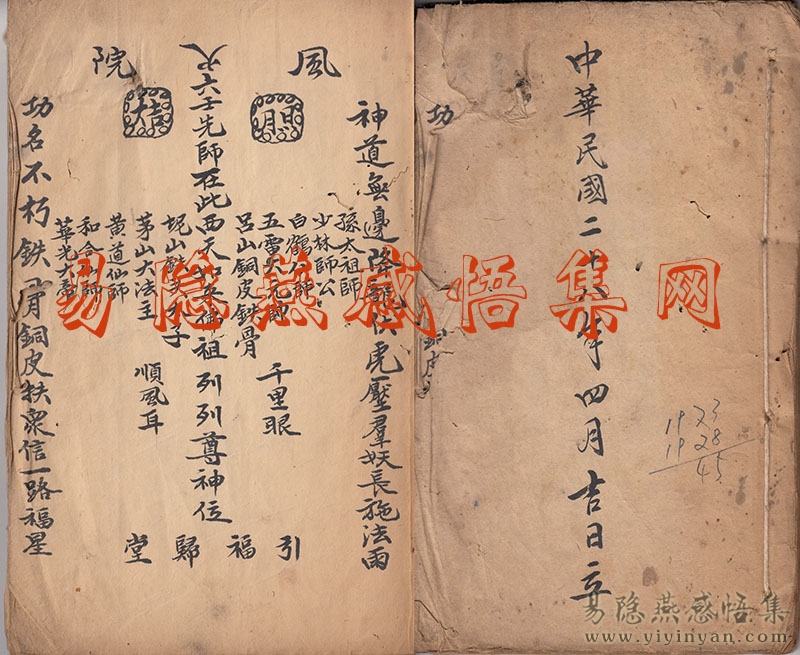 中華民國二十八年四月吉日立
功
銅皮
19 23
19 28
45
風火院
神道無邊降龍伏虎壓羣妖長施法雨
孫太祖師
少林師公
白鶴仙師
五雷大元帥
呂山銅皮鉄骨
千里眼
六壬先師在此西天如來佛祖列列尊神位
茅山大法主
順風耳
黃道仙師
和合仙師
華光大帝
功名不朽鉄骨銅皮扶衆信一路福星
引福歸堂
易隐燕感悟集网
易隐燕感悟集
www.yiyinyan.com